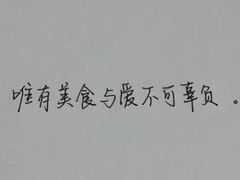 唯有美食与爱不可辜负。